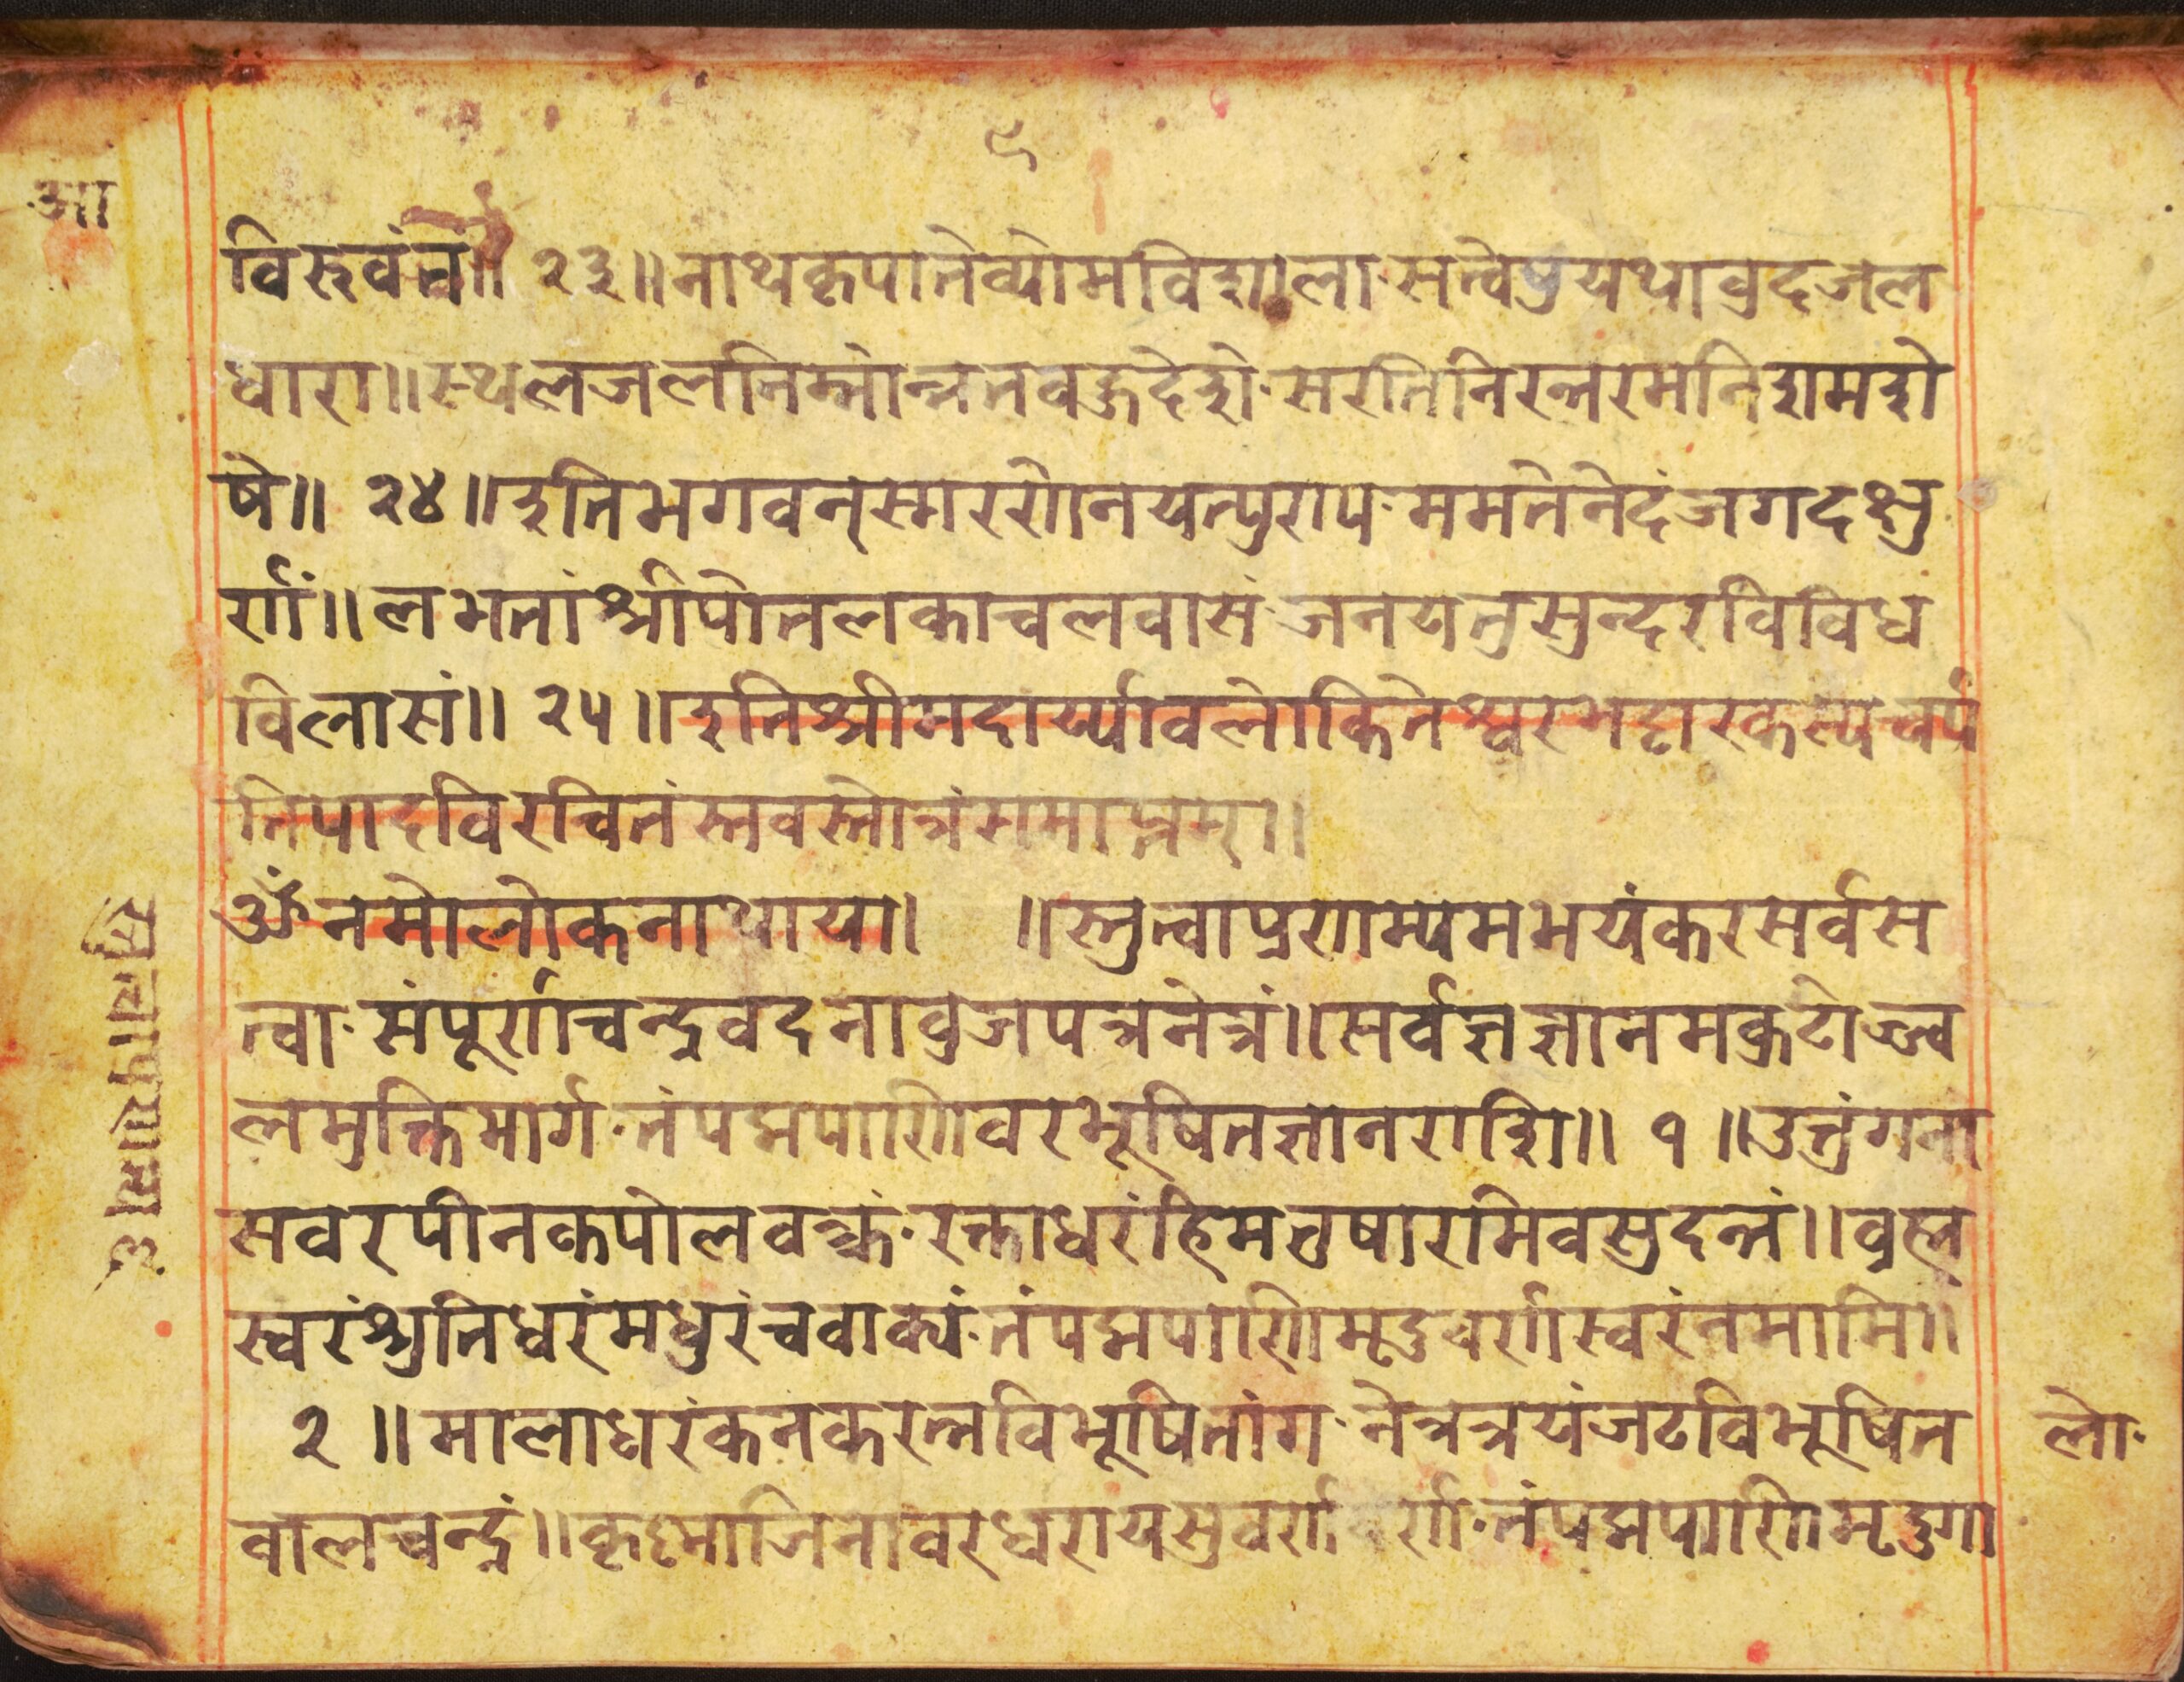 ९
आ
विरुवंतं॥ २३॥नाथकृपातेव्योमविशाला·सत्वेषुयथावुदजल
धारा॥स्थलजलनिम्नोन्नतवद्गुदेशे·सरतिनिरन्तरमनिशमशे
षे॥ २४॥इतिभगवन्स्मरणेनयत्पुराप·ममतेनेदंजगदक्षु
र्णां॥लभतांश्रीपोतलकाचलवासं·जनयतुसुन्दरविविध
विलासं॥ २५॥इतिश्रीमदार्य्यावलोकितेश्वरभट्टारकस्यचर्प
तिपादविरचितंस्तवस्तोत्रंसमाप्तम्॥
ॐनमोलोकनाथाय॥ ॥स्तुत्वाप्रणाम्यमभयंकरसर्वस
त्वा·संपूर्णाचन्द्रवदनोवुजपत्रनेत्रं॥सर्वज्ञज्ञानमक्रटोज्ज्व
लमुक्तिमार्ग·तंपद्मपाणिवरभूषितज्ञानराशि॥ १॥उत्तुंगना
सवरपीनकपोलवक्त्रं·रक्ताधरंहिमतुषारमिवसुदन्तं॥वृह्म
स्वरंश्रुतिधरंमधुरंचवाक्यं·तंपद्मपाणिमृदुवर्णास्वरंनमामि॥
२॥मालाधरंकनकरत्नविभूषितांग·नेत्रत्रयंजटविभूषित
लो·
वालचन्द्रं॥कृष्णाजिनावरधरायसुवर्णवर्णा·तंपद्मपाणिमृदुगा
स्तुत्वाप्रणम्य